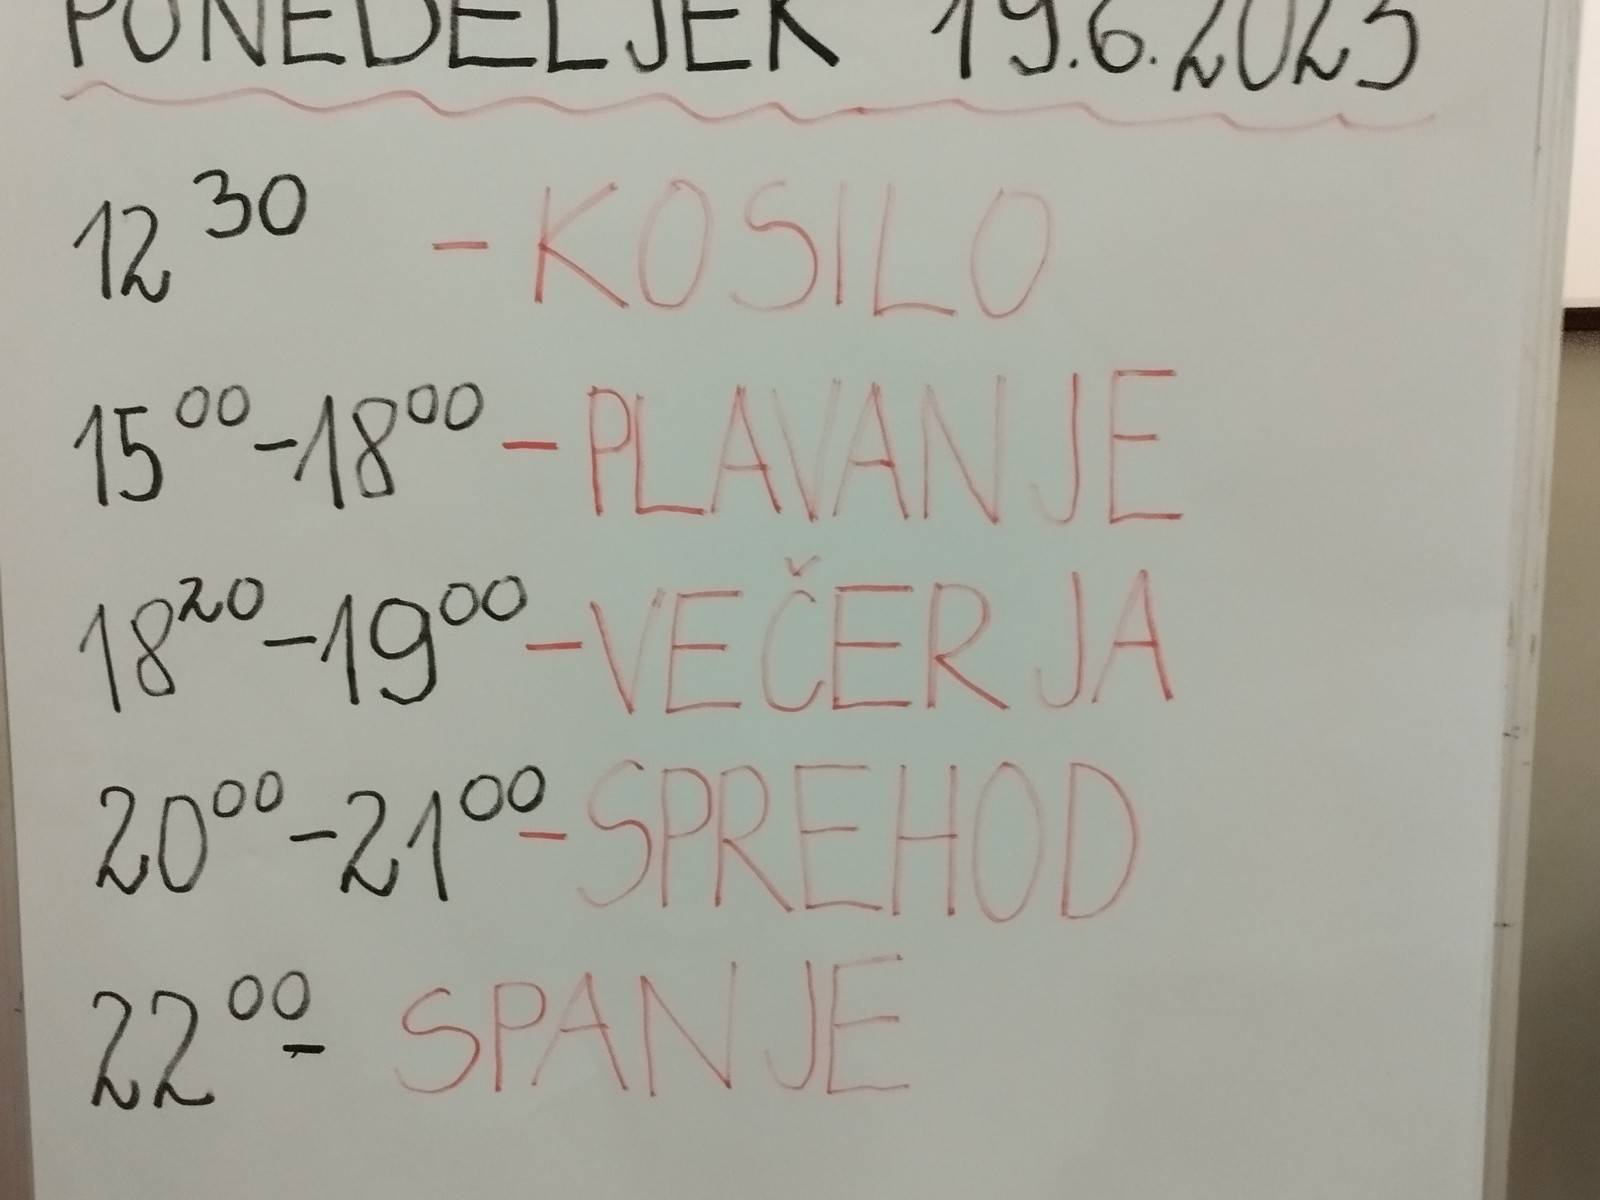 PONEDELJEK 19.6.2023
12 30 - KOSILO
15 00 - 18 00 - PLAVANJE
18 20 - 19 00 - VEČERJA
20 00 - 21 00 - SPREHOD
22 00 - SPANJE